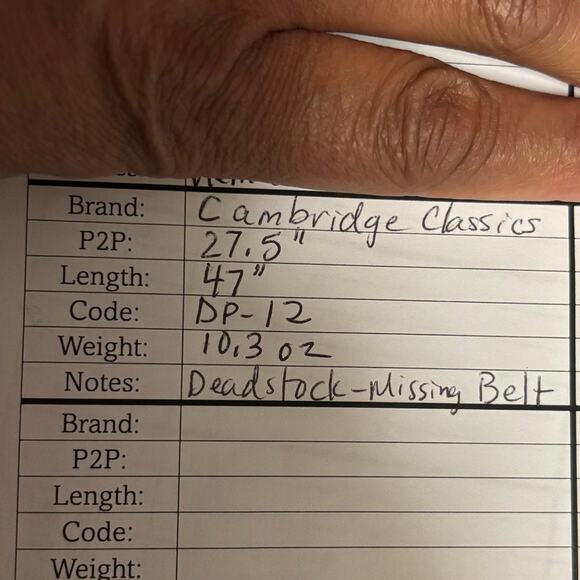 Brand: Cambridge Classics
P2P: 27.5"
Length: 47"
Code: DP-12
Weight: 10.3 oz
Notes: Deadstock-Missing Belt
Brand:
P2P:
Length:
Code:
Weight: